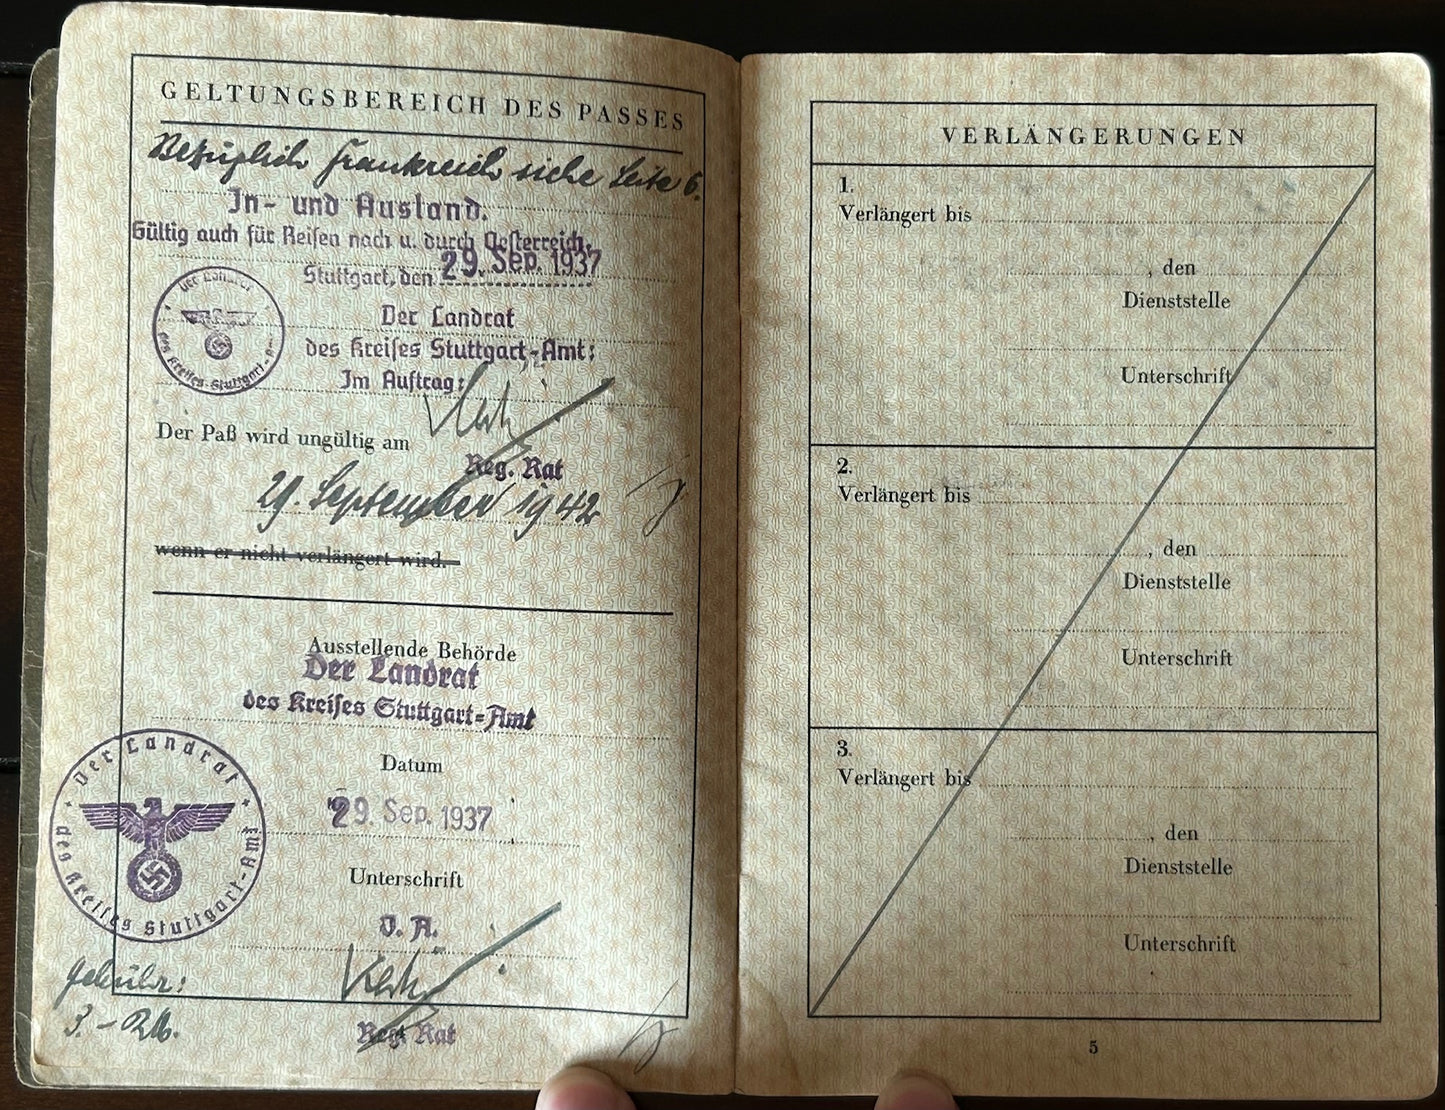 GELTUNGSBEREICH DES PASSES
Bezüglich Frankreich siehe Seite 6.
In- und Ausland.
Gültig auch für Reisen nach u. durch Oesterreich.
Stuttgart, den 29. Sep. 1937
Der Landrat
des Kreises Stuttgart-Amt:
Im Auftrag:
Der Landrat
des Kreises Stuttgart-Amt
Der Paß wird ungültig am
Reg. Rat
29. September 1942
wenn er nicht verlängert wird.
Ausstellende Behörde
Der Landrat
des Kreises Stuttgart-Amt
Datum
29. Sep. 1937
Der Landrat
des Kreises Stuttgart-Amt
Unterschrift
J. A.
Gebühr:
3.- RM.
Reg. Rat
VERLÄNGERUNGEN
1.
Verlängert bis
, den
Dienststelle
Unterschrift
2.
Verlängert bis
, den
Dienststelle
Unterschrift
3.
Verlängert bis
, den
Dienststelle
Unterschrift
5